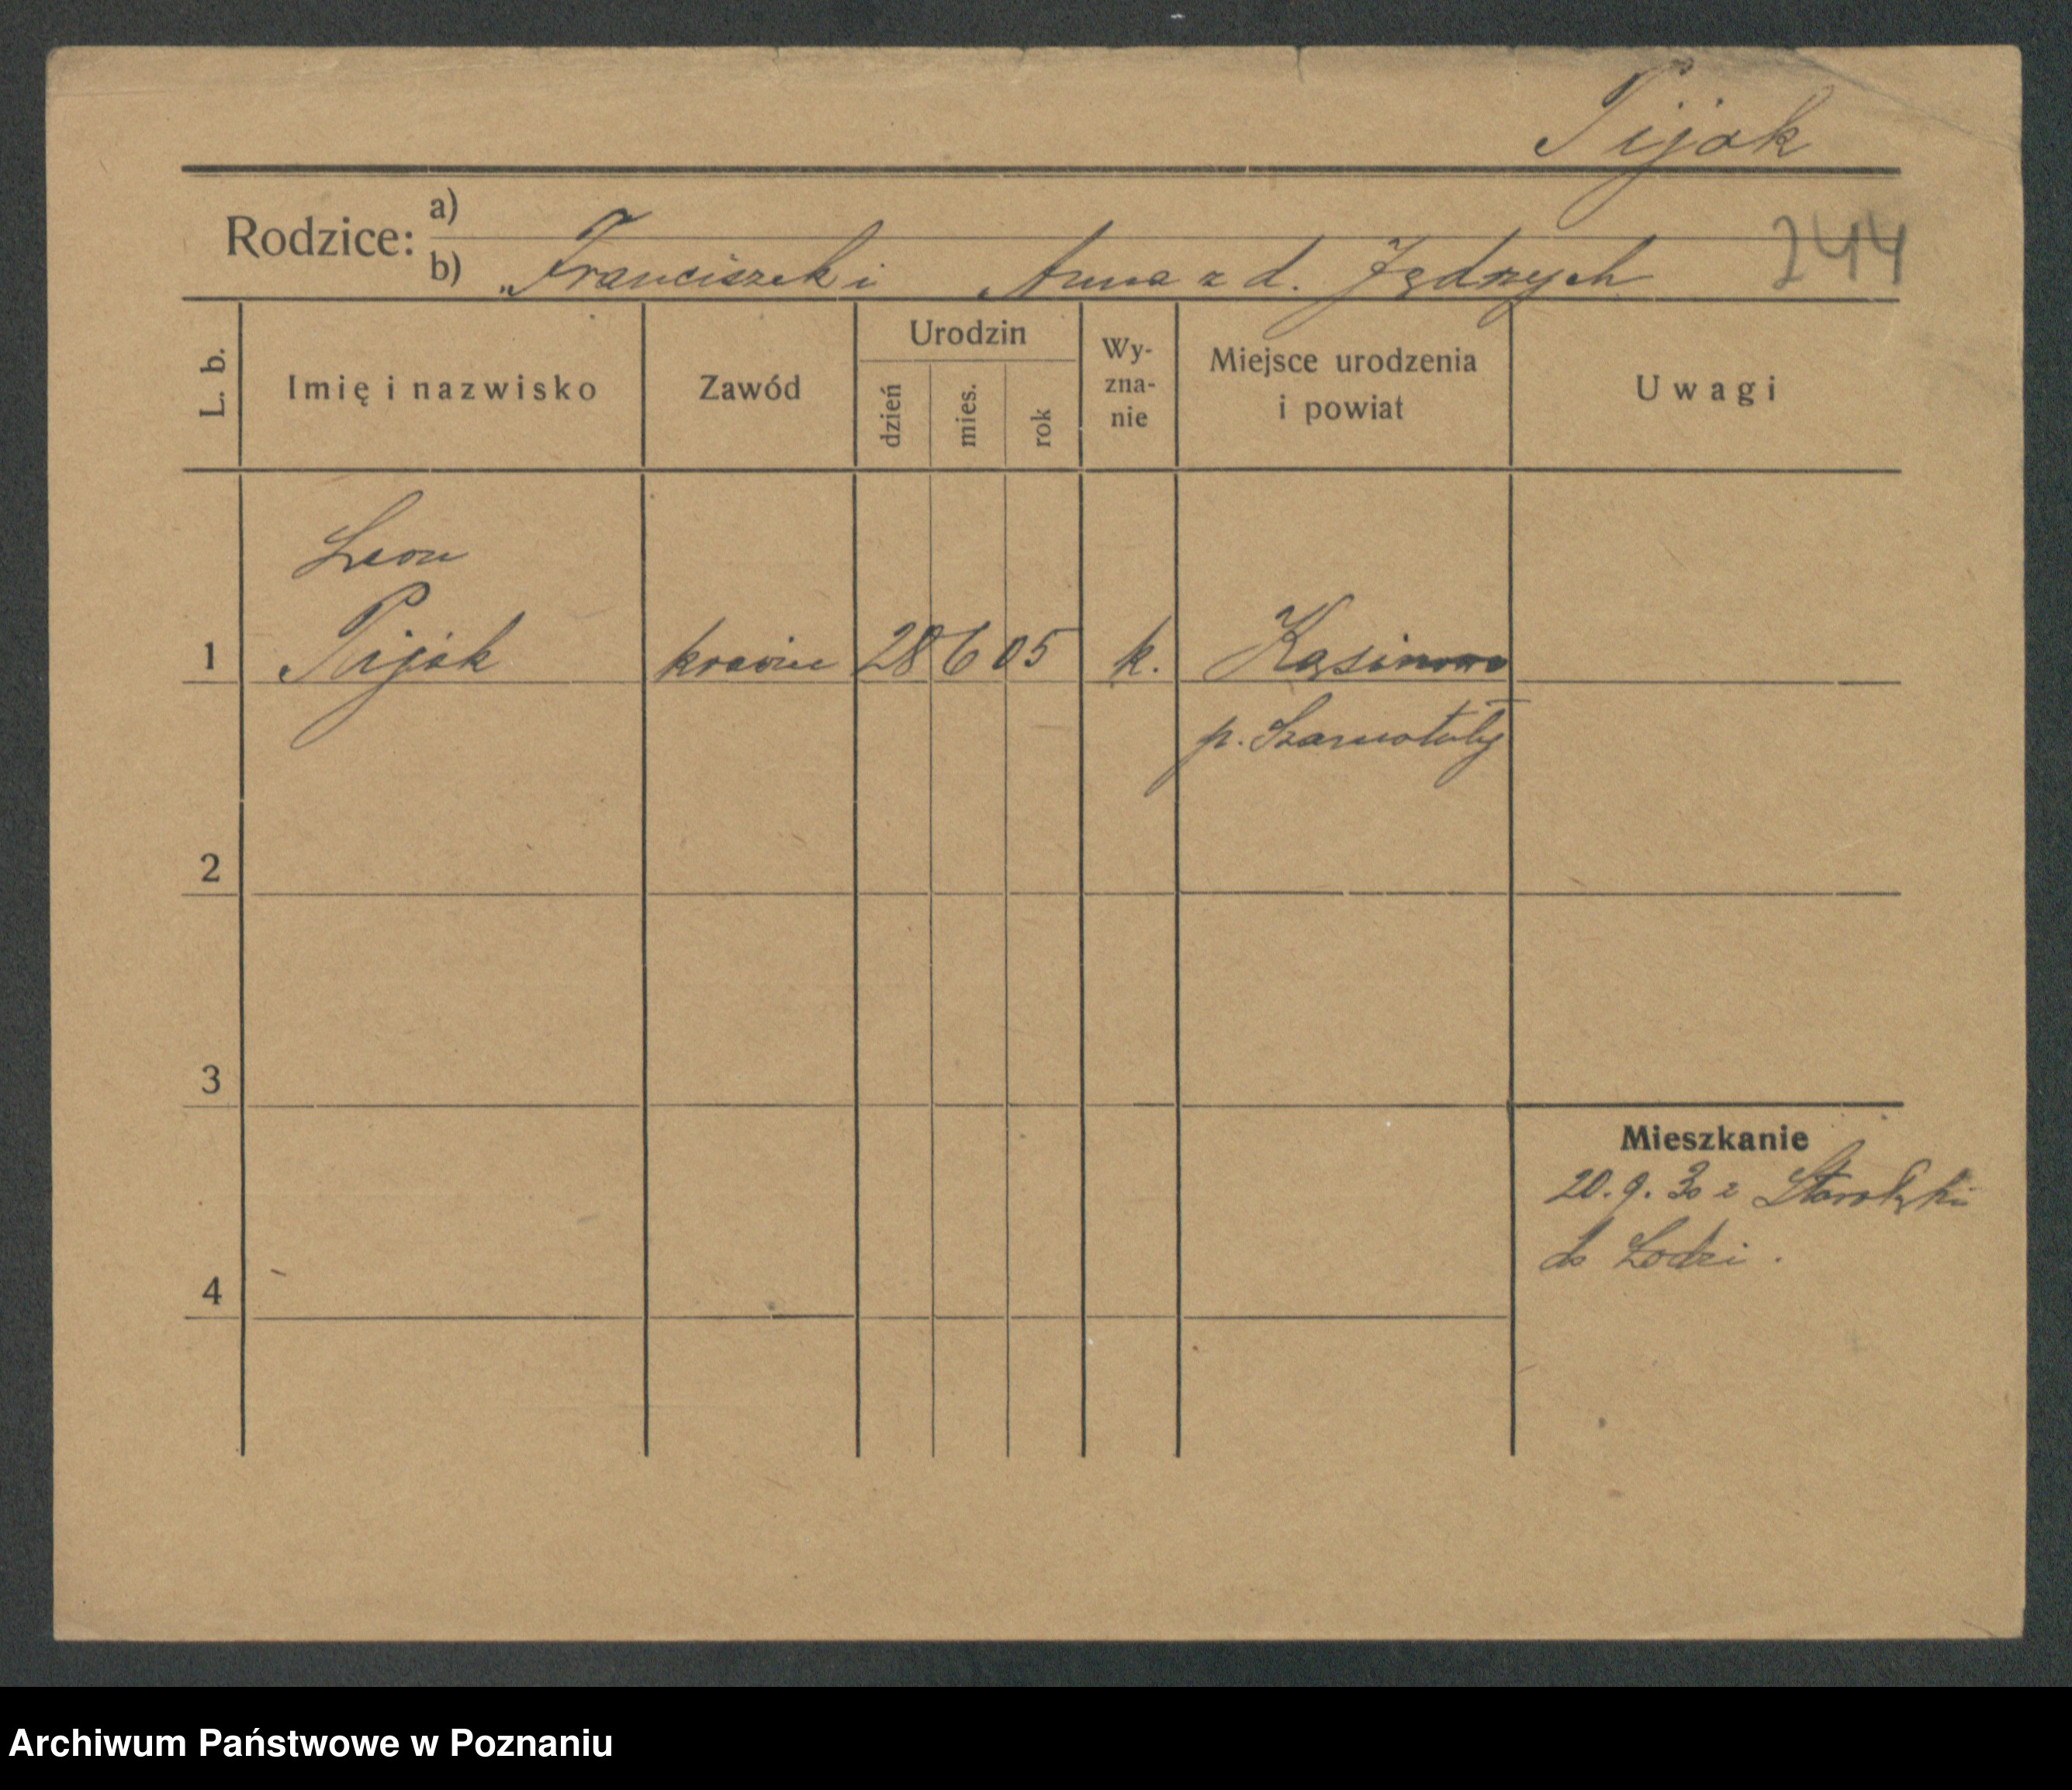 Pijak
Rodzice: a)
b) Franciszek i Anna z d. Jędrzych
244
L. b. Imię i nazwisko Zawód Urodzin dzień mies. rok Wyznanie Miejsce urodzenia i powiat Uwagi
Leon
1 Pijak krawiec 28 6 05 k. Kąsinowo
p. Szamotuły
2
3
Mieszkanie
20. 9. 30 z Starołęki
do Łodzi.
4
Archiwum Państwowe w Poznaniu